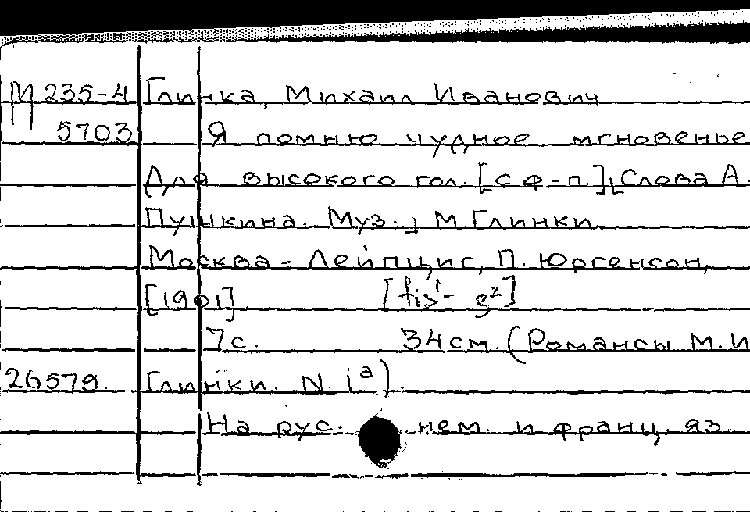 М 235-4 Глинка, Михаил Иванович
5703 Я помню чудное мгновенье
Для высокого гол. [с ф-п.] [Слова А.
Пушкина. Муз.] М. Глинки.
Москва - Лейпциг, П. Юргенсон,
[1901] [fis¹ - g²]
7 с. 34 см. (Романсы М. И
26579. Глинки. N 1ª)
На рус. нем. и франц. яз.